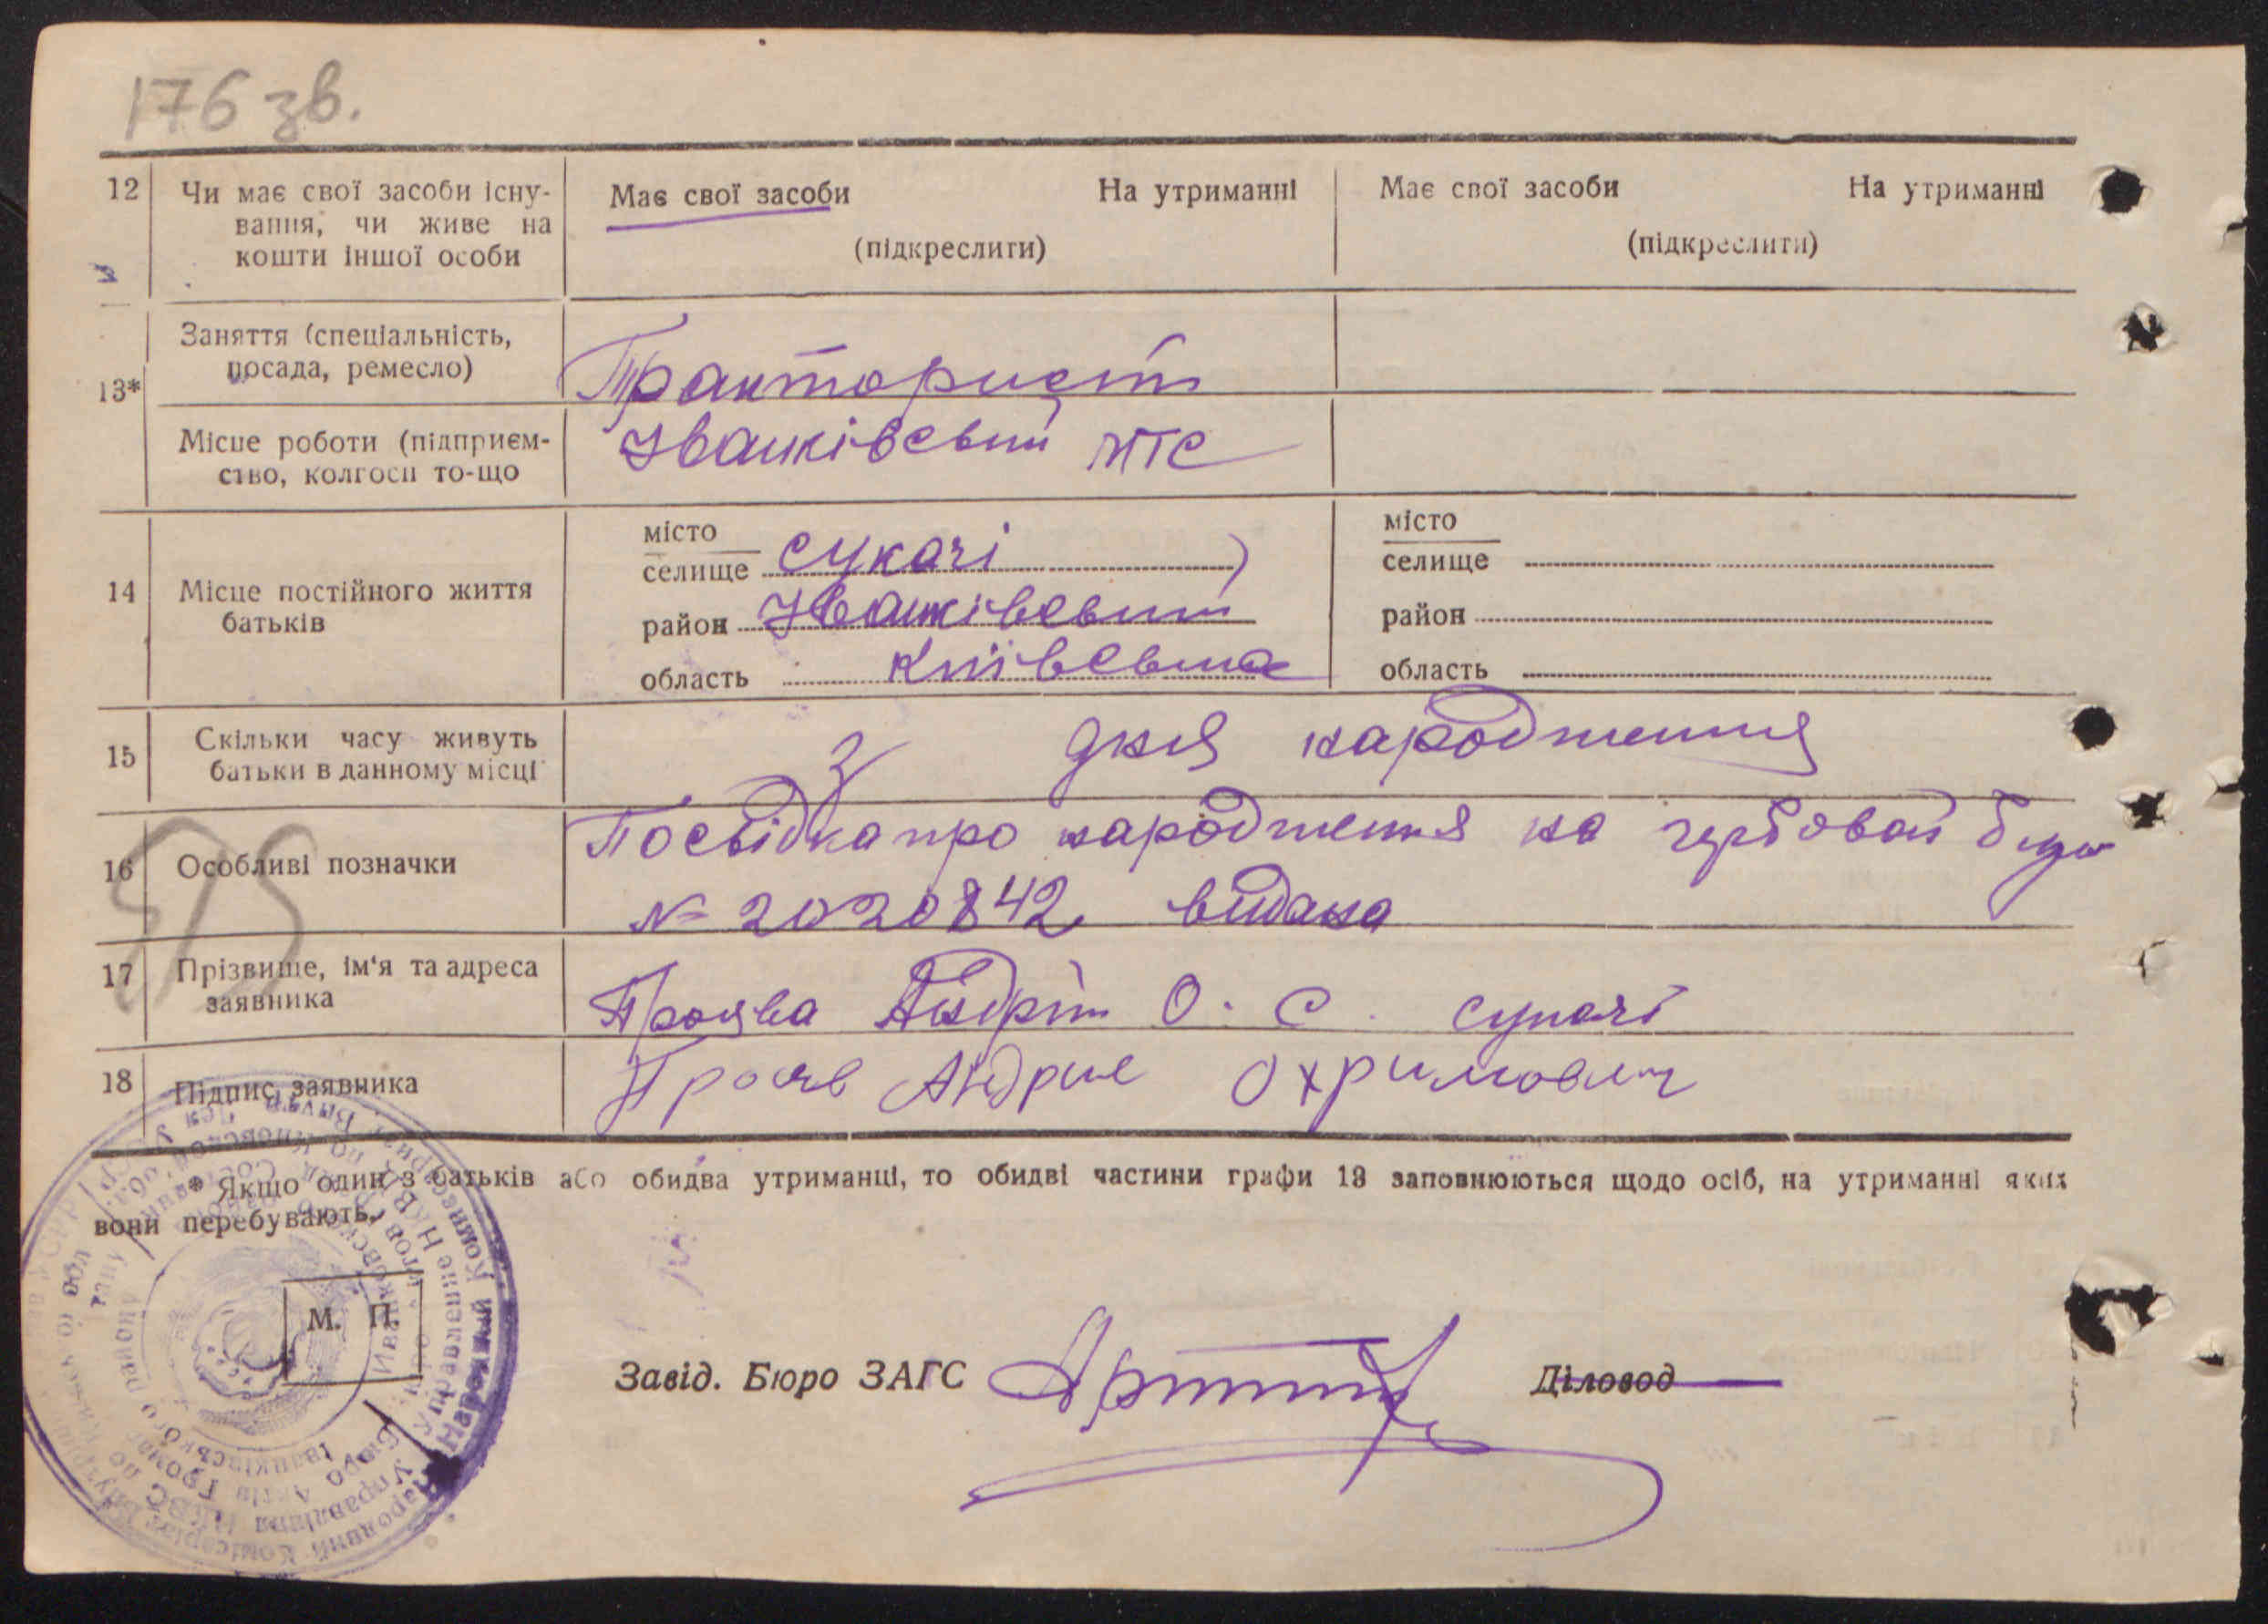 176 зв.
12 Чи має свої засоби існу-
вання, чи живе на
кошти іншої особи
Має свої засоби На утриманні
(підкреслити)
Має свої засоби На утриманні
(підкреслити)
13*
Заняття (спеціальність,
посада, ремесло)
Тракторист
Місце роботи (підприєм-
ство, колгосп то-що
Іванківський МТС
14 Місце постійного життя
батьків
місто
селище Сукачі
район Іванківський
область Київська
місто
селище
район
область
15 Скільки часу живуть
батьки в данному місці
З дня народження
16 Особливі позначки
Посвідка про народження на гербовой
№ 2020842 видана
17 Прізвище, ім'я та адреса
заявника
Андрій О. С. Сукачі
18 Підпис заявника
Андрие Охримович
* Якщо один з батьків або обидва утриманці, то обидві частини графи 13 заповнюються щодо осіб, на утриманні яких
вони перебувають.
М. П.
Завід. Бюро ЗАГС
Діловод